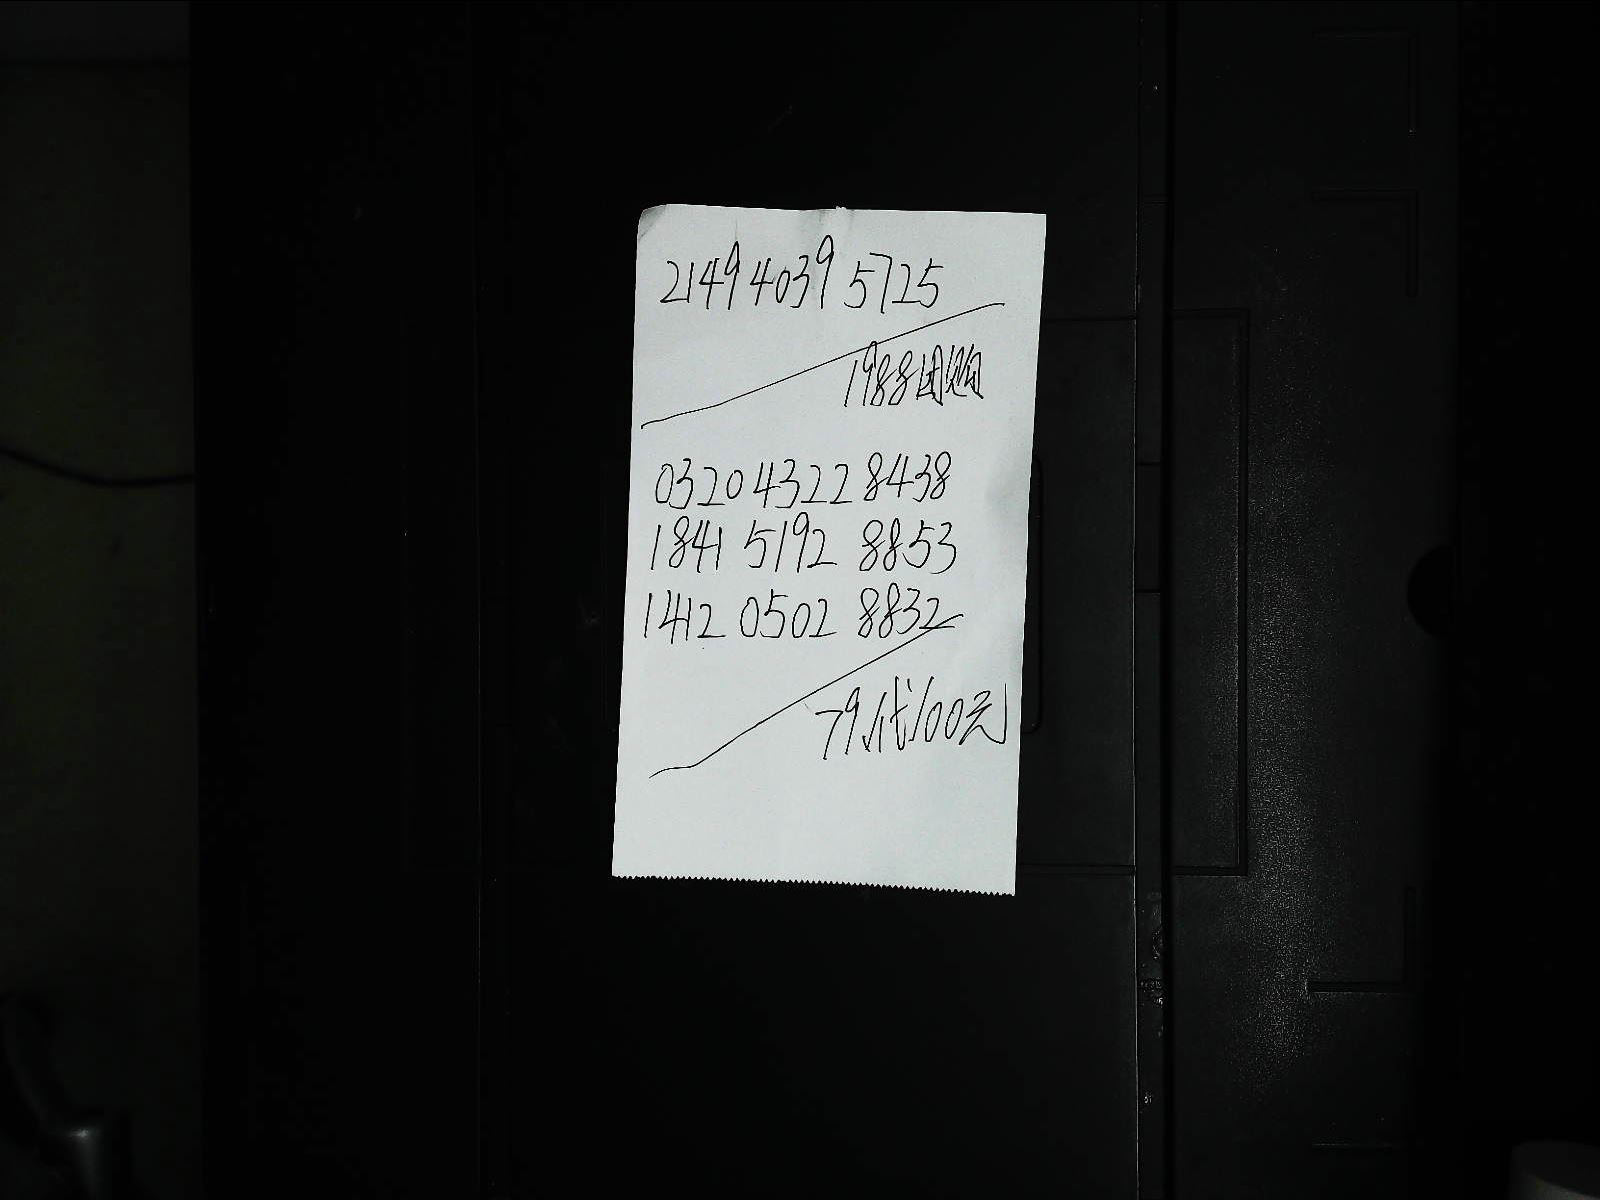 2149 4039 5725
1988团购
0320 4322 8438
1841 5192 8853
1412 0502 8832
79代100元